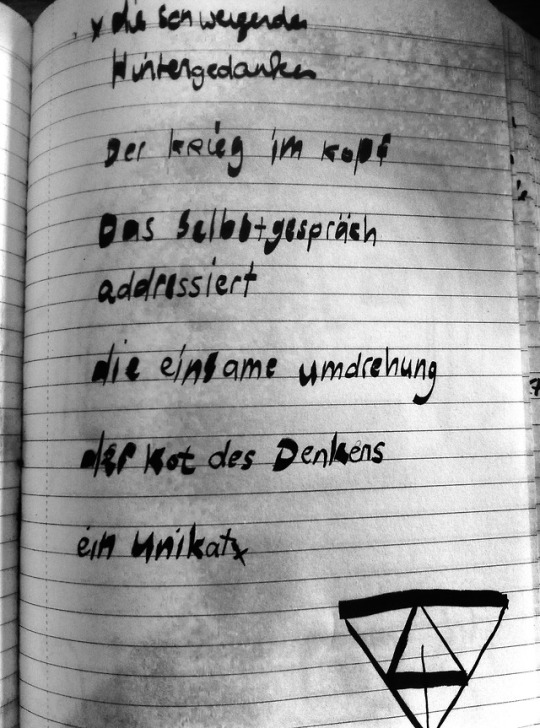 x die schweigenden
Hintergedanken
Der krieg im kopf
Das Selbstgespräch
addressiert
die einsame umdrehung
der kot des Denkens
ein unikat x